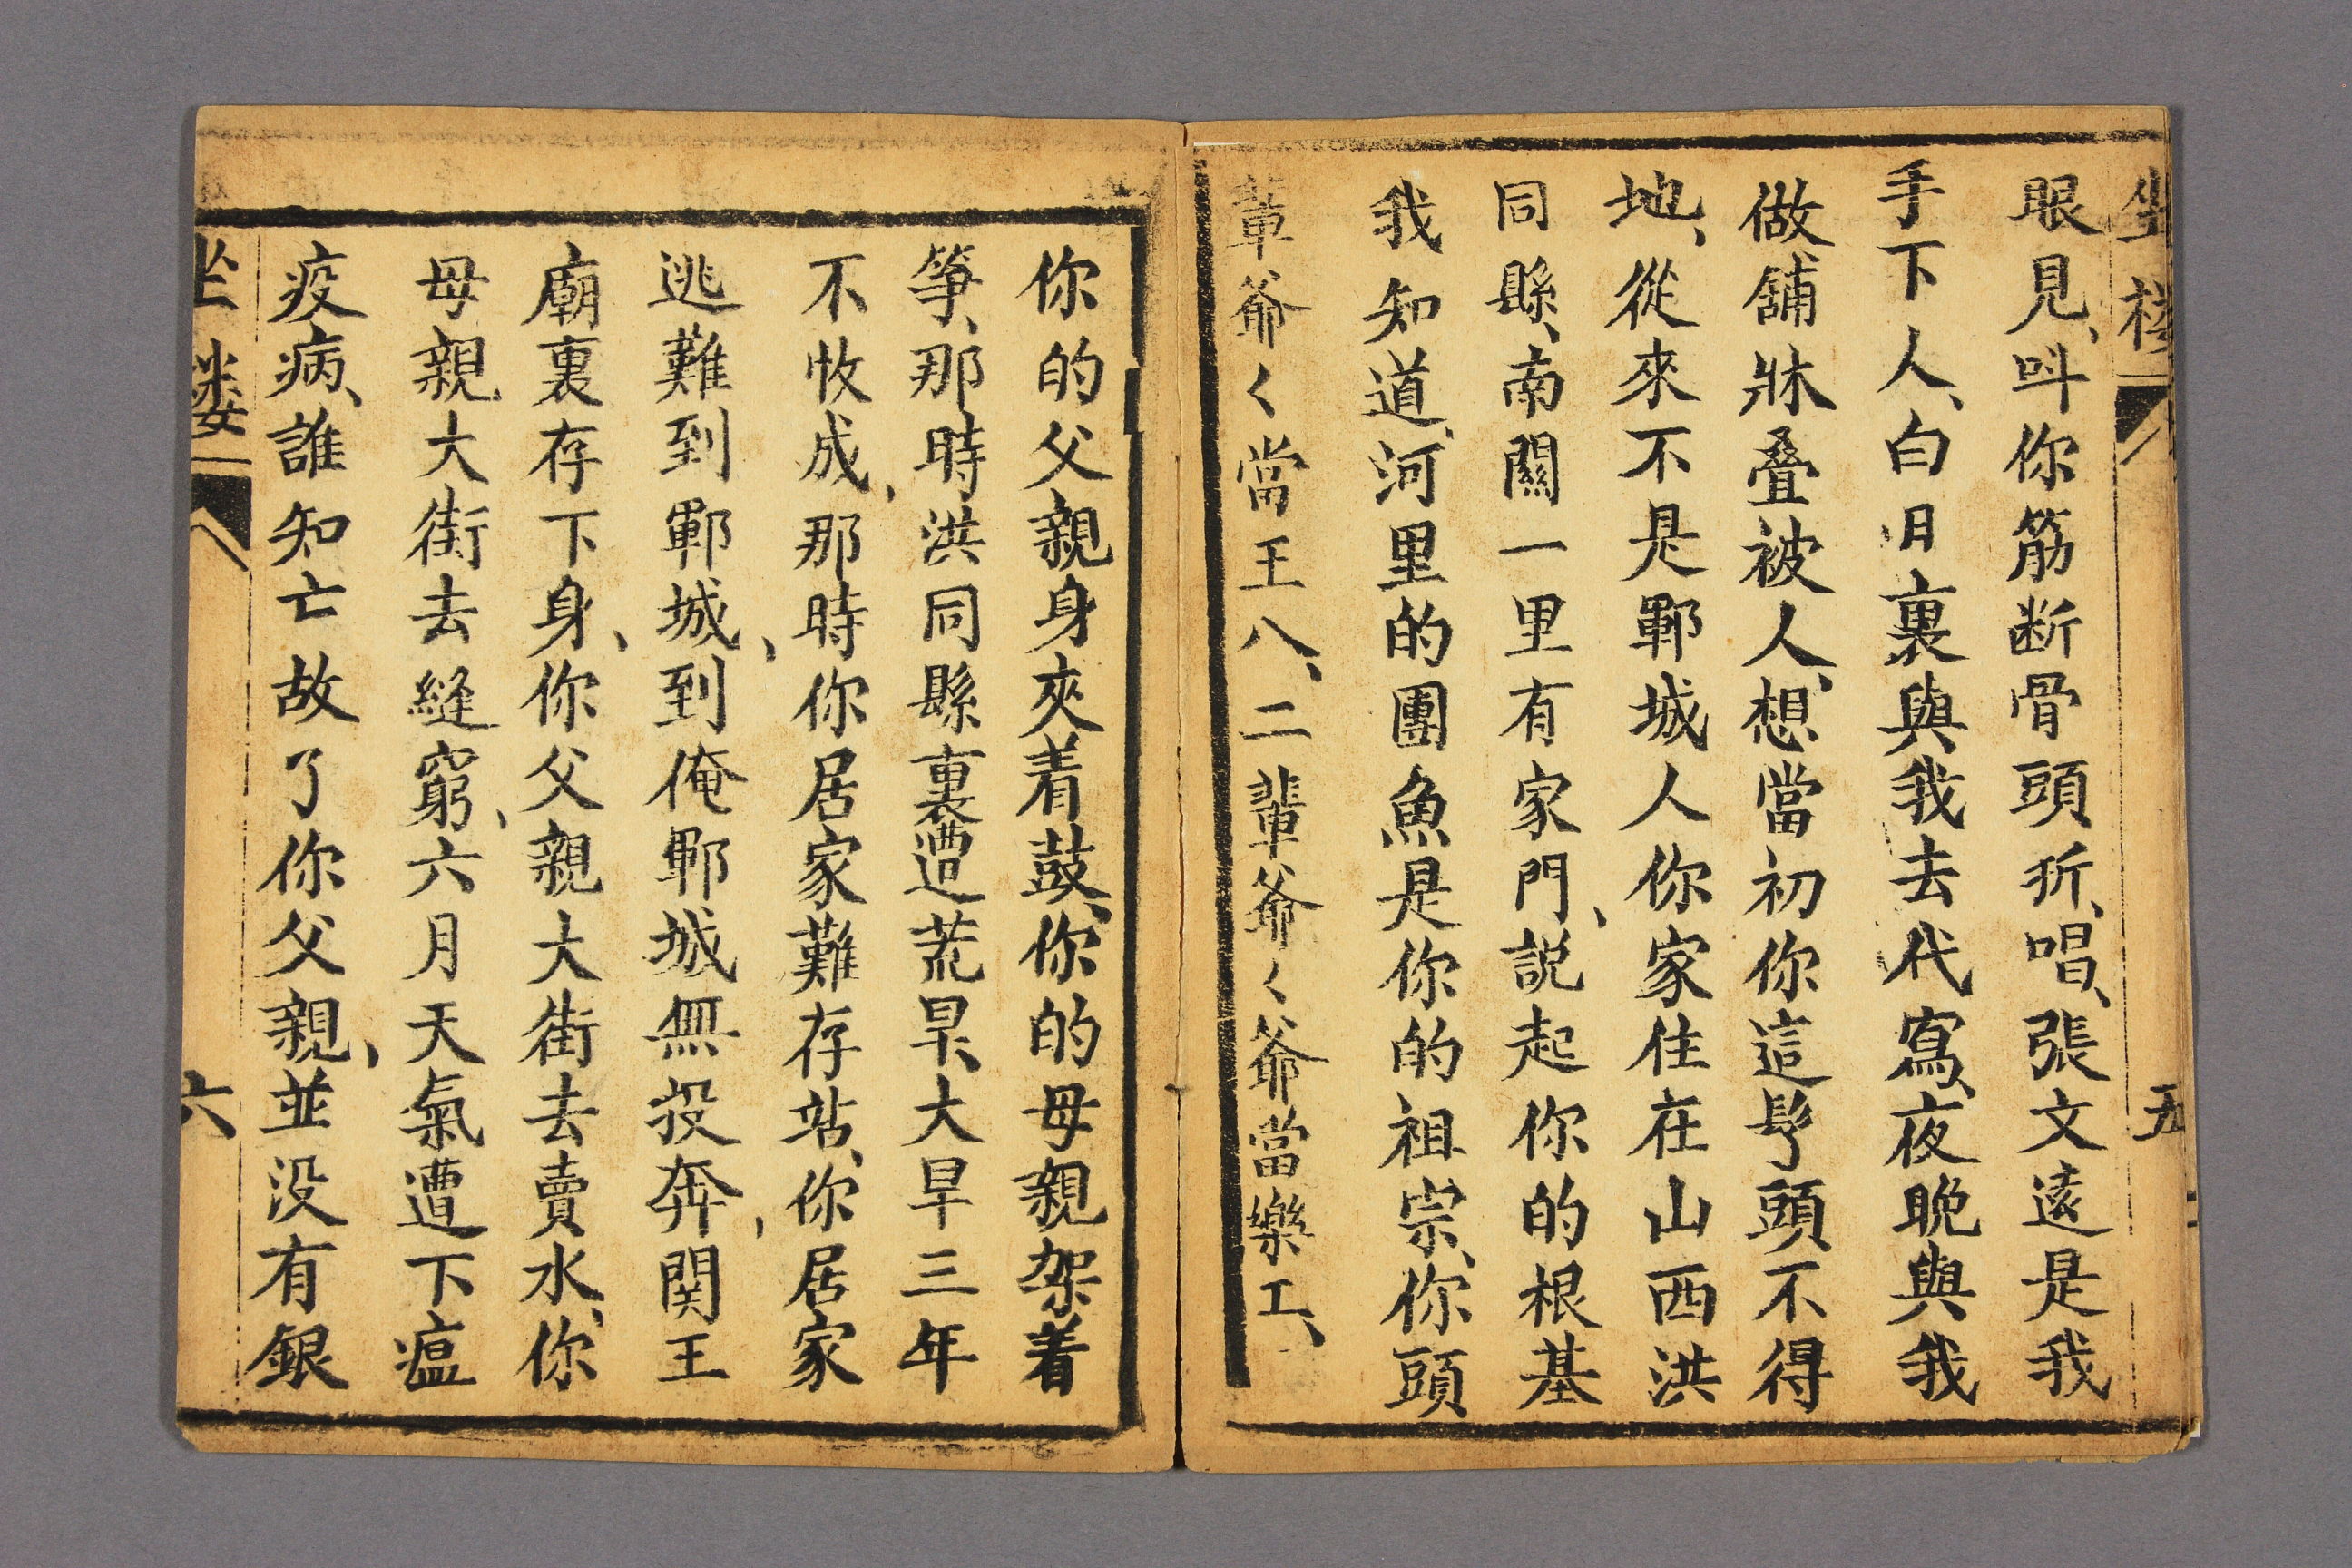 坐楼 五
眼見、呌你筋断骨頭折、唱、張文遠是我
手下人、白日裏與我去代寫、夜晚與我
做舖牀叠被人、想當初你這髩頭不得
地、從來不是鄆城人你家住在山西洪
同縣、南關一里有家門、説起你的根基
我知道、河里的團魚是你的祖宗、你頭
輩爺く當王八、二輩爺く爺當樂工、
你的父親身夾着鼓、你的母親架着
筝、那時洪同縣裏遭荒旱、大旱三年
不收成、那時你居家難存站、你居家
逃難到鄆城、到俺鄆城無投奔、関王
廟裏存下身、你父親大街去賣水、你
母親大街去縫窮、六月天氣遭下瘟
疫病、誰知亡故了你父親、並没有銀
坐楼 六